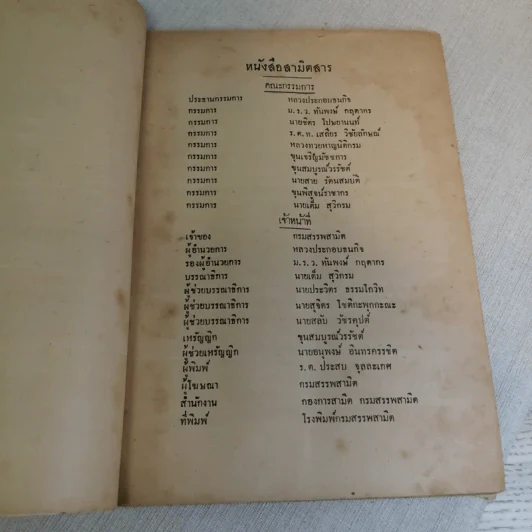 หนังสือสามิตสาร
คณะกรรมการ
ประธานกรรมการ หลวงประกอบธนกิจ
กรรมการ ม.ร.ว. ทันพงษ์ กฤดากร
กรรมการ นายจิตร โปษยานนท์
กรรมการ ร.ต.ท. เสถียร วิชัยลักษณ์
กรรมการ หลวงทวยหาญนิติกรม
กรรมการ ขุนเจริญมัชชการ
กรรมการ ขุนสมบูรณ์วรรชัต์
กรรมการ นายสาย รัตนสมบติ
กรรมการ ขุนพิสูจน์ราชากร
กรรมการ นายเต็ม สุวิกรม
เจ้าหน้าที่
เจ้าของ กรมสรรพสามิต
ผู้อำนวยการ หลวงประกอบธนกิจ
รองผู้อำนวยการ ม.ร.ว. ทันพงษ์ กฤดากร
บรรณาธิการ นายเต็ม สุวิกรม
ผู้ช่วยบรรณาธิการ นายประวิตร ธรรมโกวิท
ผู้ช่วยบรรณาธิการ นายสุจิตร โชติกะพุกกะณะ
ผู้ช่วยบรรณาธิการ นายสลับ วัชรคุปต์
เหรัญญิก ขุนสมบูรณ์วรรชัต์
ผู้ช่วยเหรัญญิก นายอนุพงษ์ อินทรครรชิต
ผู้พิมพ์ ร.ต. ประสบ จุลละเกศ
ผู้โฆษณา กรมสรรพสามิต
สำนักงาน กองการสามิต กรมสรรพสามิต
ที่พิมพ์ โรงพิมพ์กรมสรรพสามิต